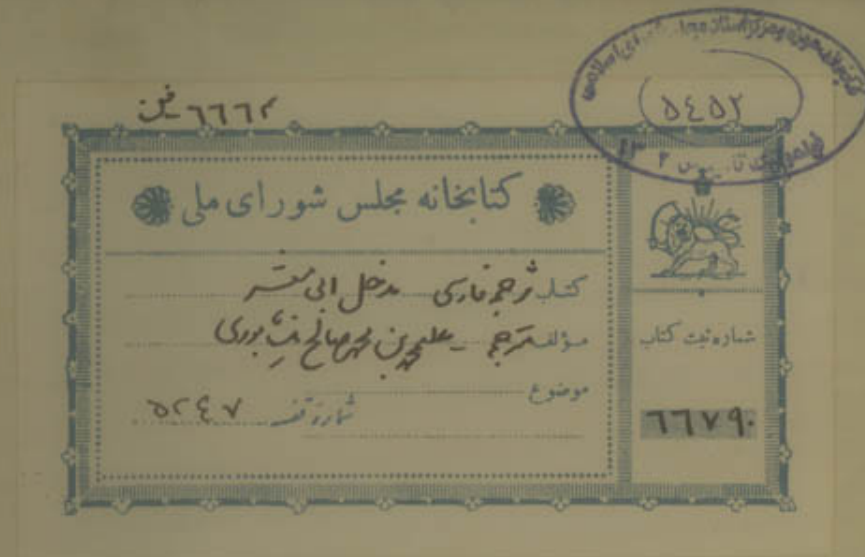 ۶۶۶۲
۵۴۵۲
کتابخانه مجلس شورای ملی
کتاب ترجمه فارسی مدخل ابی معشر
مؤلف مترجم علیمحمد بن محمد صالح
موضوع
شماره قفسه ۵۲۴۷
شماره ثبت کتاب
۶۶۷۹۰